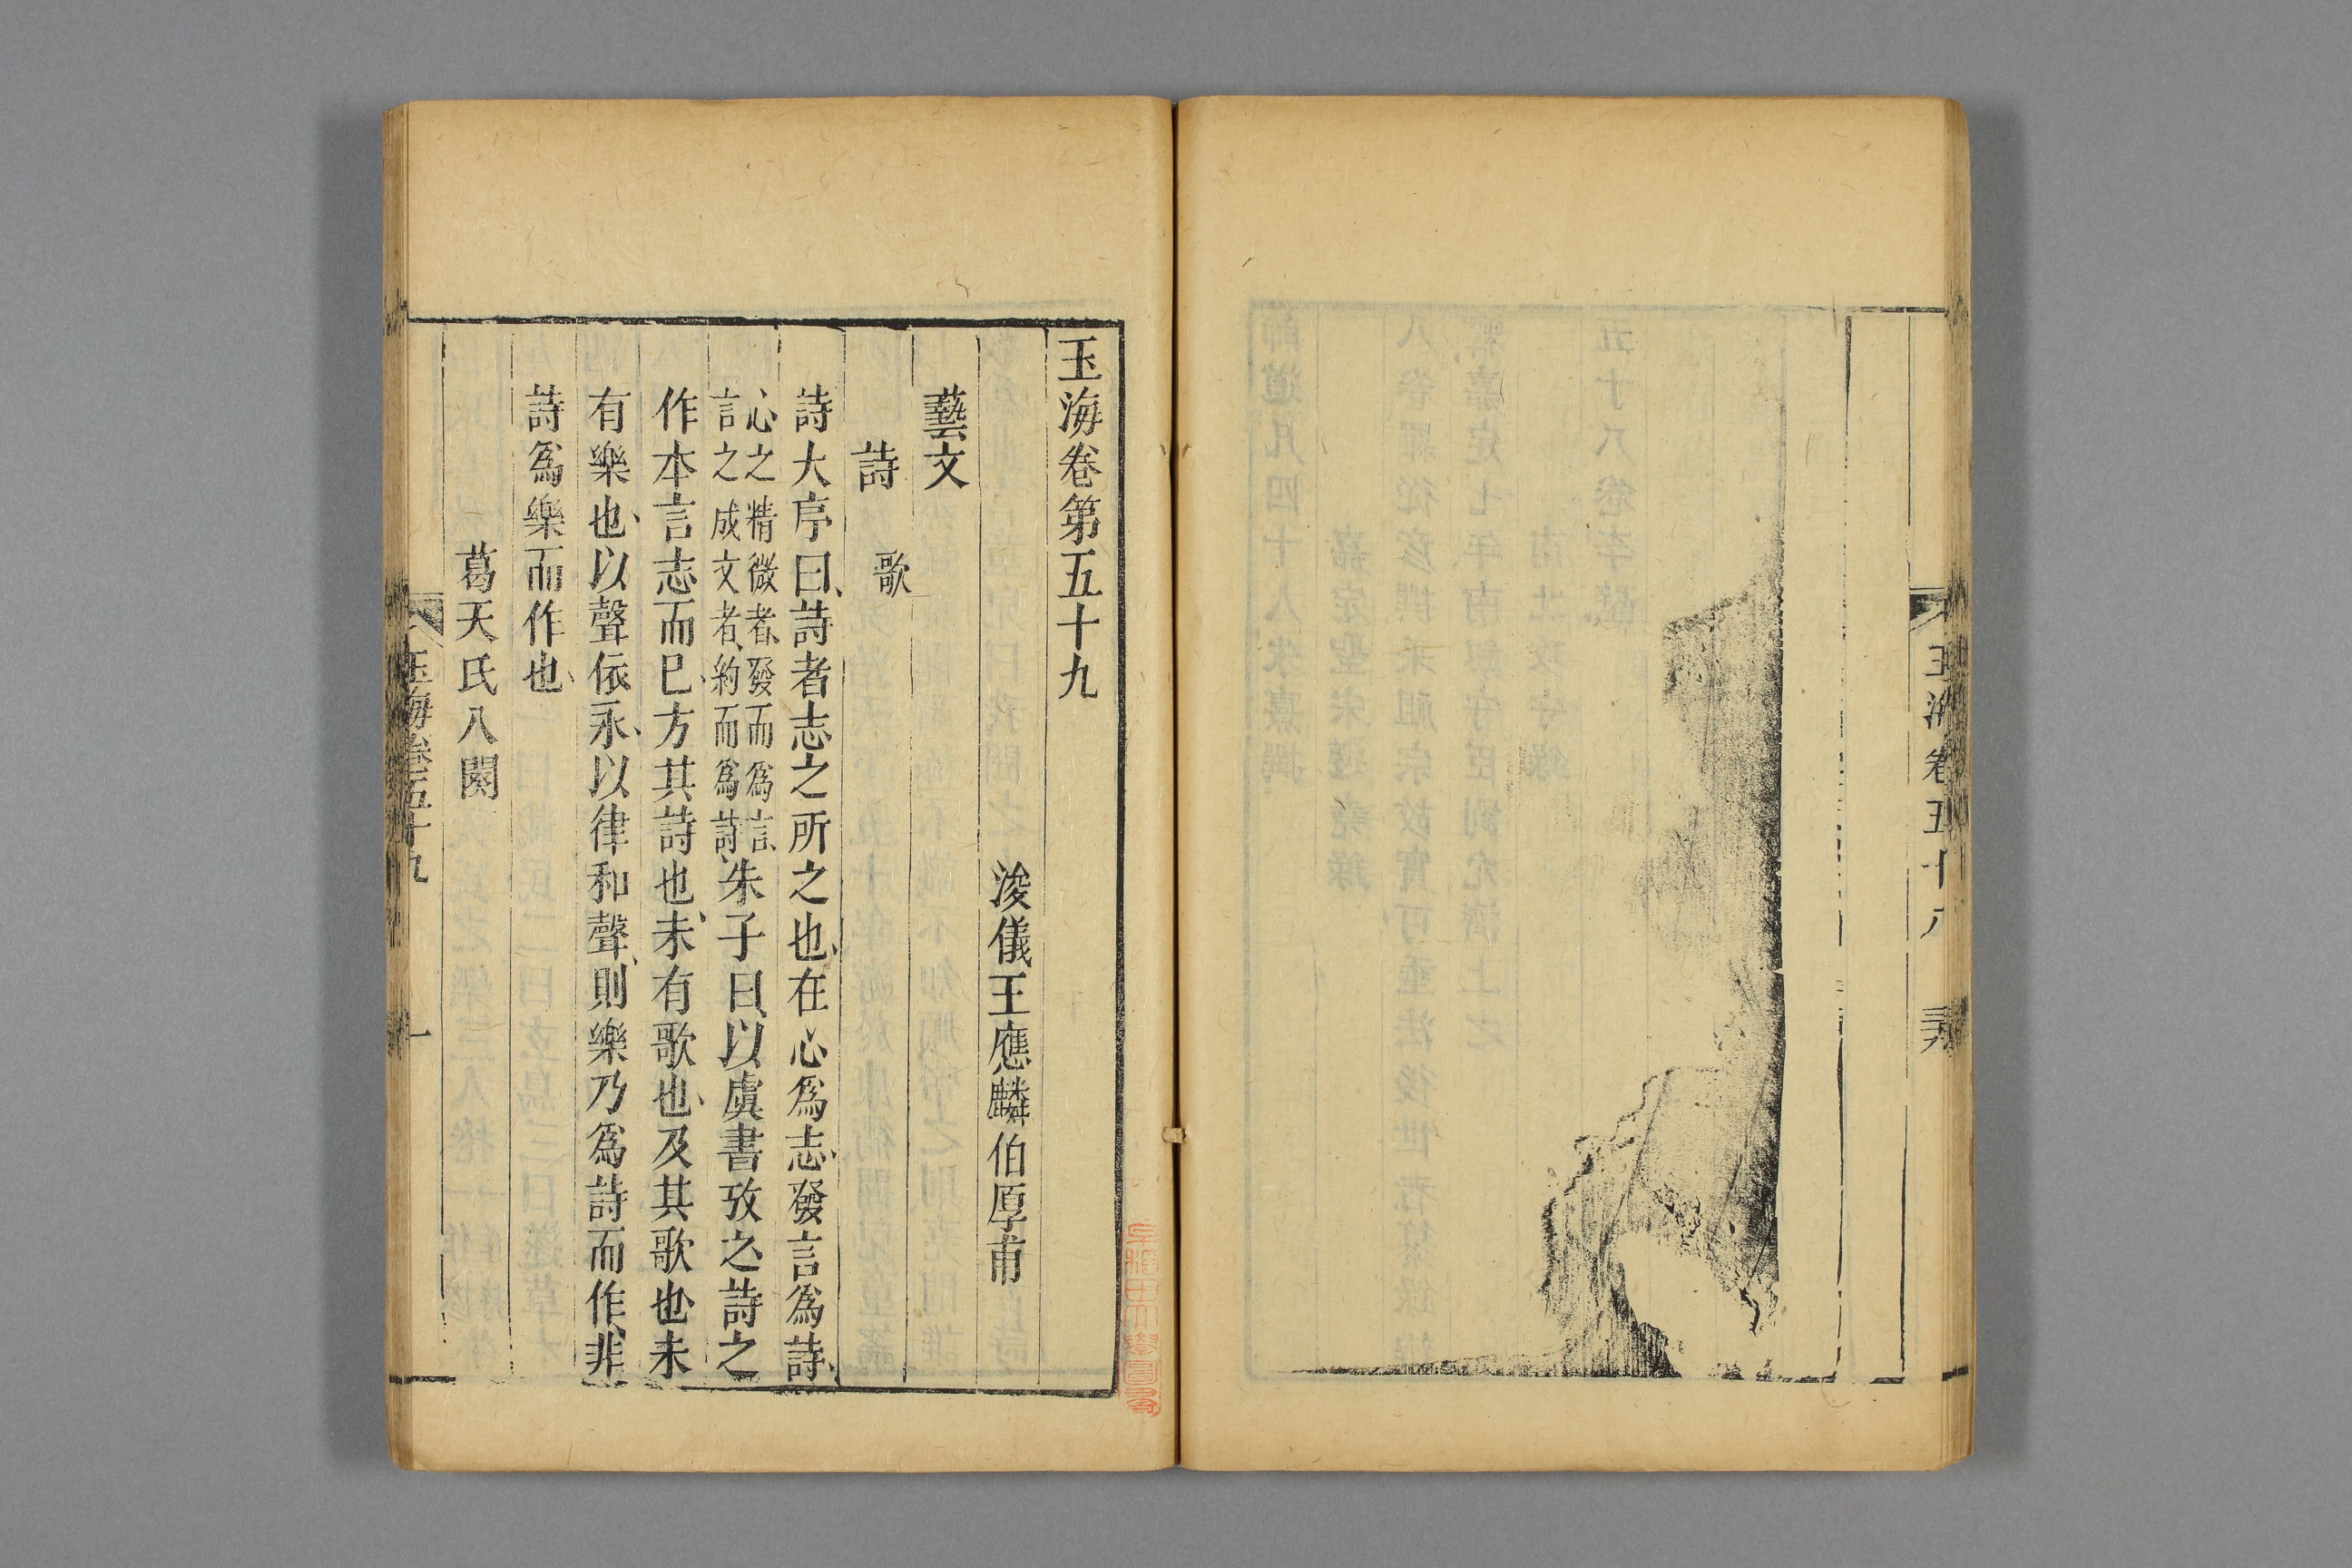 玉海卷五十八
玉海卷第五十九
浚儀王應麟伯厚甫
藝文
詩 歌
詩大序曰、詩者志之所之也、在心爲志、發言爲詩、
心之精微者、發而爲言、
言之成文者、約而爲詩、
朱子曰、以虞書攷之、詩之
作本言志而巳、方其詩也、未有歌也、及其歌也、未
有樂也、以聲依永、以律和聲、則樂乃爲詩而作、非
詩爲樂而作也、
葛天氏八闋
玉海卷五十九 一
早稻田大學圖書